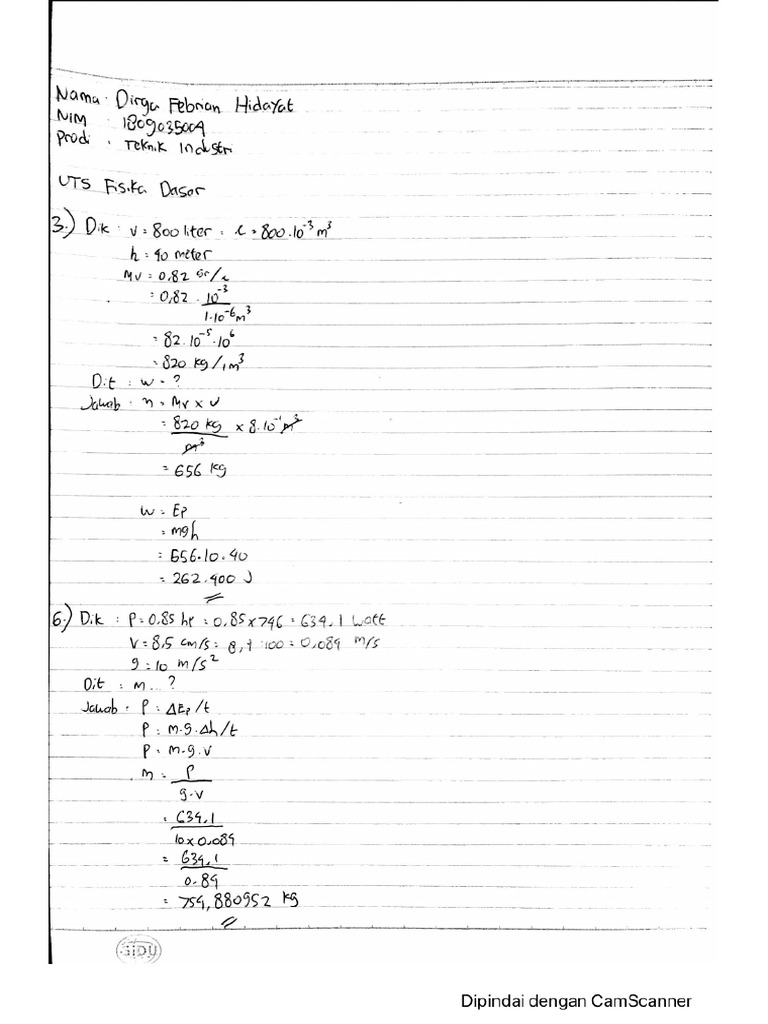 Nama : Dirga Febrian Hidayat
NIM : 1809035009
Prodi : Teknik Industri
UTS Fisika Dasar
3.) Dik : V = 800 liter = L = 800.10⁻³ m³
h = 40 meter
Mv = 0,82 gr/L
= 0,82 . 10⁻³
1.10⁻⁶m³
= 82.10⁻⁵.10⁶
= 820 kg/1m³
Dit : w = ?
Jawab : m = Mv x v
= 820 kg x 8.10⁻¹ m³
m³
= 656 kg
w = Ep
= mgh
= 656.10.40
= 262.400 J
6.) Dik : P = 0.85 hp = 0.85 x 746 = 634.1 watt
V = 8,5 cm/s = 8,4 : 100 = 0,084 m/s
g = 10 m/s²
Dit : m...?
Jawab : P = ΔEp/t
P = m.g.Δh/t
P = m.g.v
m = P
g.v
= 634,1
10 x 0.084
= 634,1
0.84
= 754,880952 kg
SIDU
Dipindai dengan CamScanner